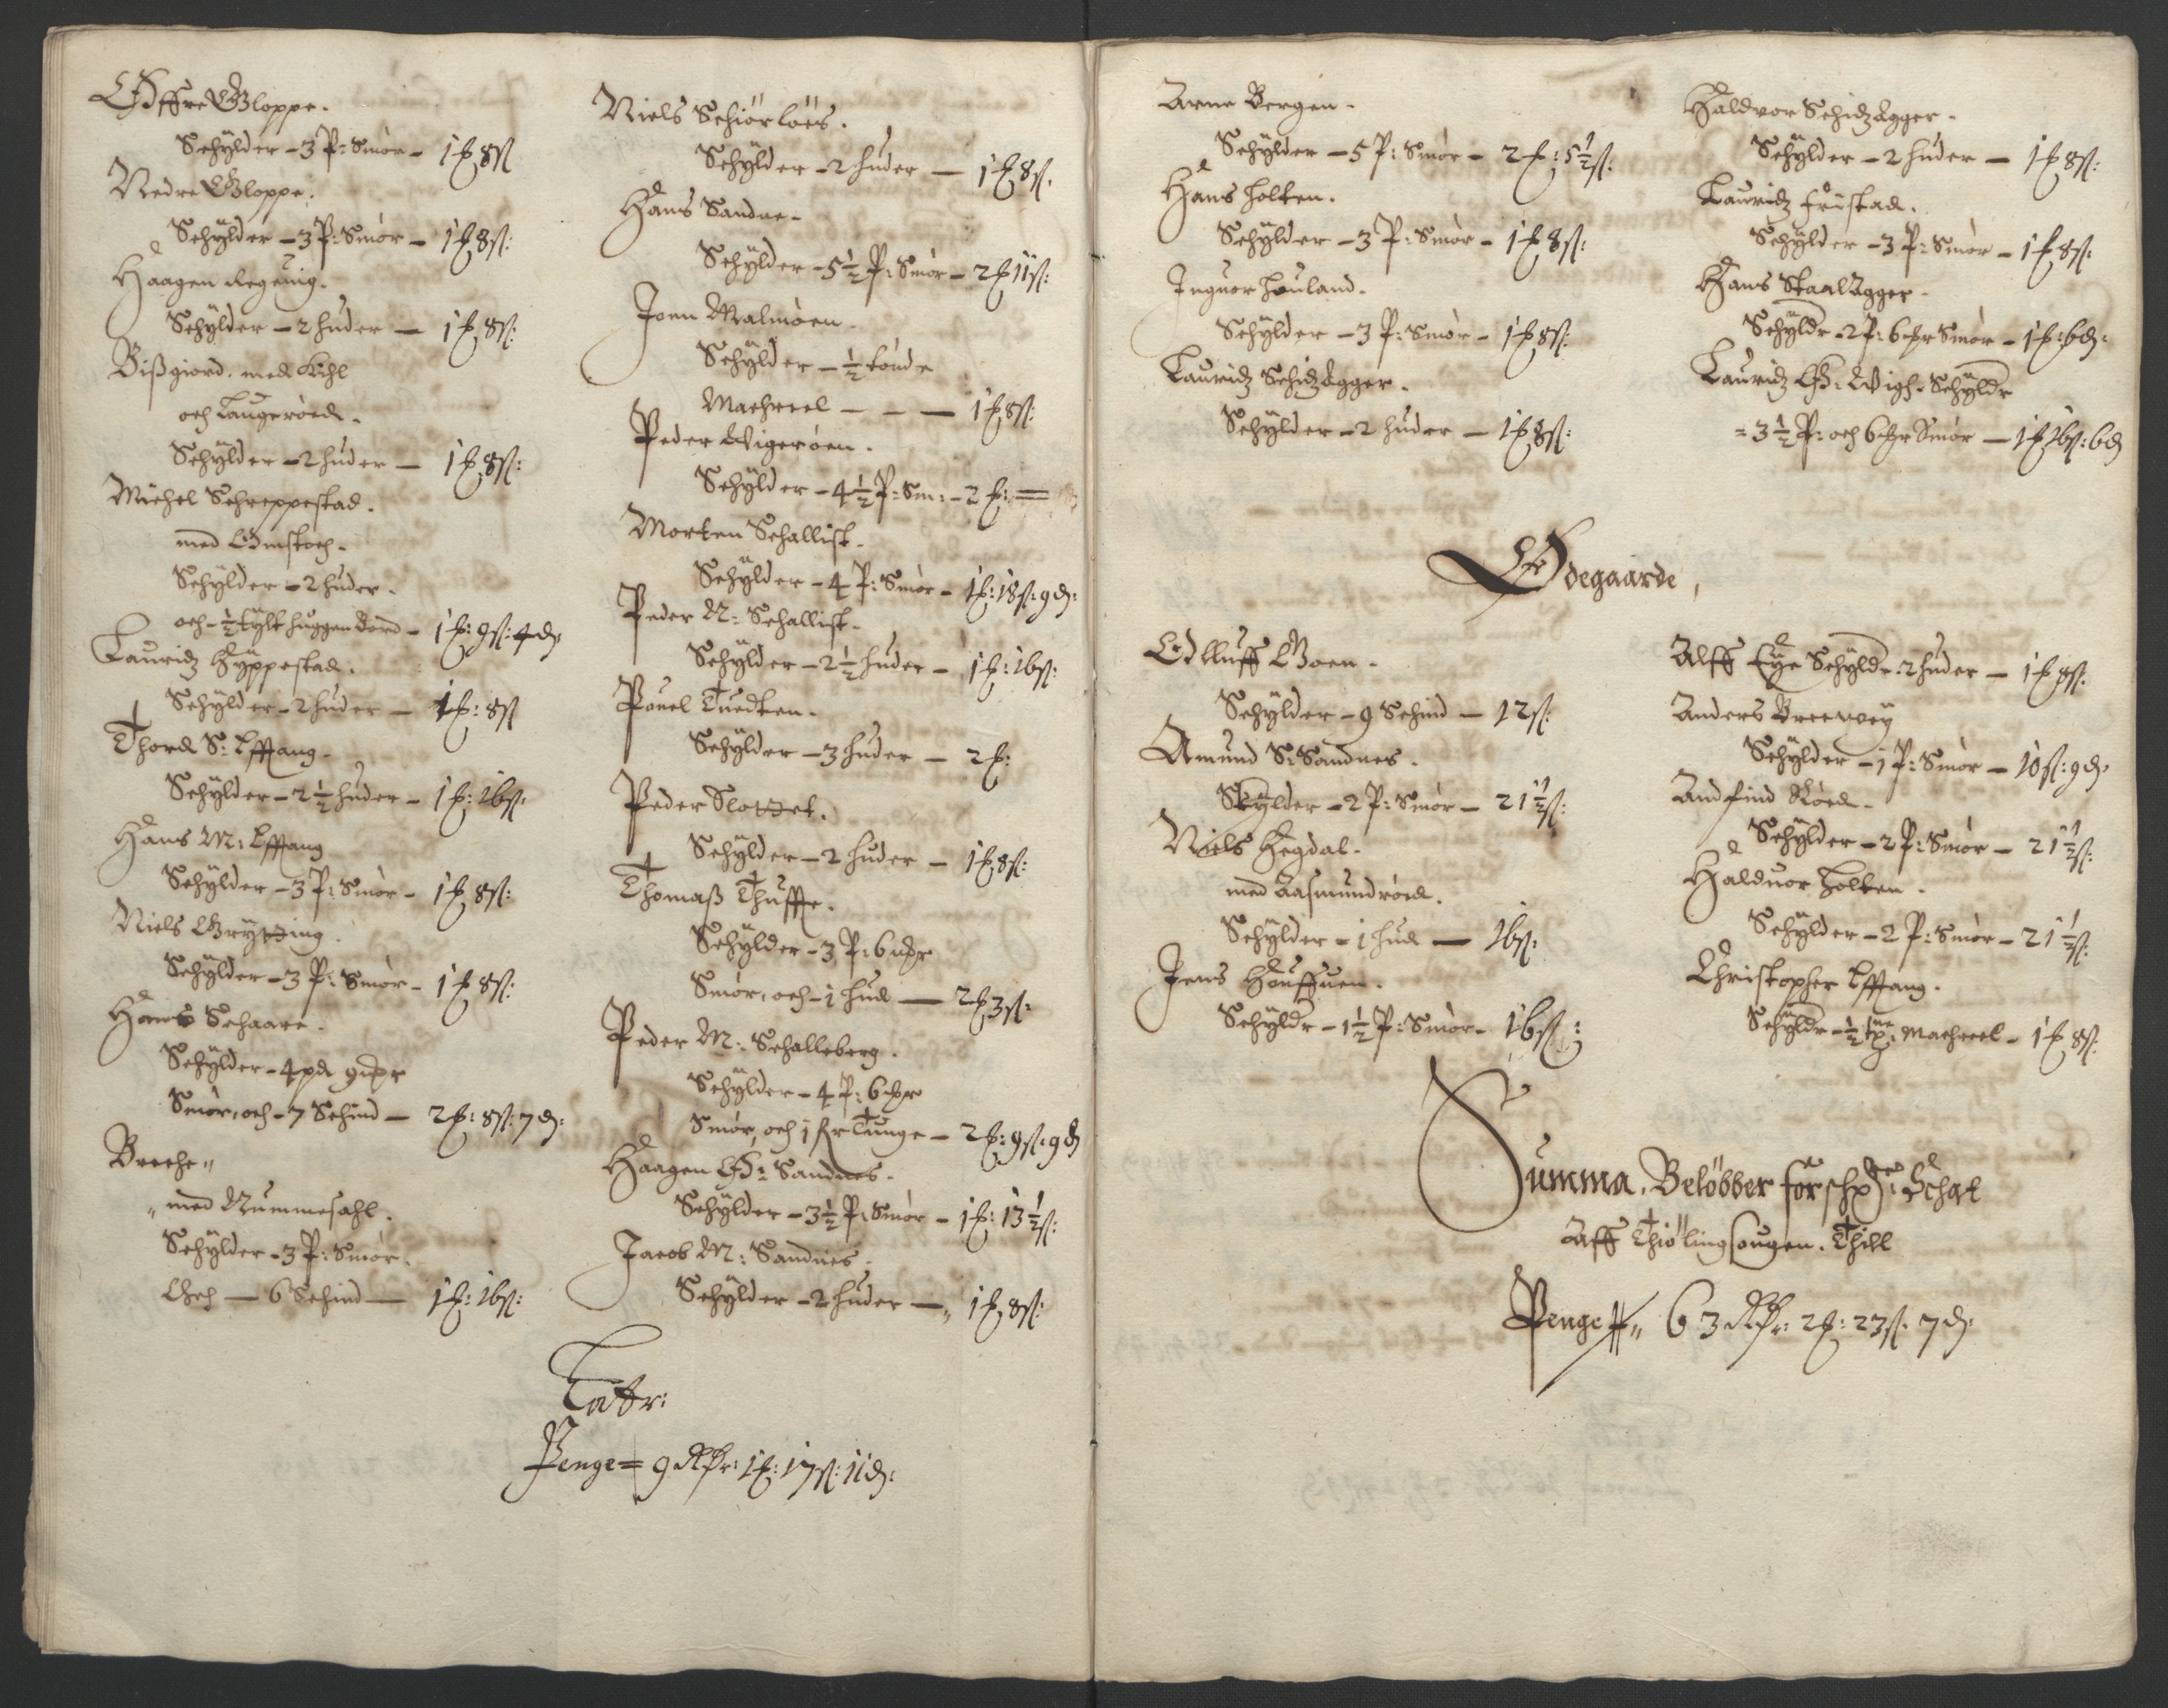 Øffre Gloppe.
Schÿlder - 3 P: Smör - 1 £ 8 ß
Nedre Gloppe.
Schÿlder - 3 P: Smör - 1 £ 8 ß:
Haagen
Schÿlder - 2 huder - 1 £ 8 ß:
Bißgiord. med Kihl
och Laugeröed.
Schÿlder - 2 huder - 1 £ 8 ß:
Michel Schreppestad.
med
Schÿlder - 2 huder.
och - ½ tÿlt huggen bord - 1 £: 9 ß: 4 d:
Lauridz Hÿppestad.
Schÿlder - 2 huder - 1 £: 8 ß
Thord S: Effang.
Schÿlder - 2½ huder - 1 £: 16 ß:
Hans M: Effang
Schÿlder - 3 P: Smör - 1 £ 8 ß:
Niels Grÿtting.
Schÿlder - 3 P: Smör - 1 £ 8 ß:
Hans Schaare.
Schÿlder - 4 pd 9 mpr
Smör, och - 7 Schind - 2 £: 8 ß: 7 d:
Breche "
" med Rummesahl.
Schÿlder - 3 P: Smör.
Och - 6 Schind - 1 £: 16 ß:
Niels Schiörlöes.
Schÿlder - 2 huder - 1 £ 8 ß.
Hans Sandne.
Schÿlder - 5½ P: Smör - 2 £ 11 ß:
Joen Malmöen.
Schÿlder - ½ tönde
Machreel - - - 1 £ 8 ß:
Peder Wigeröen.
Schÿlder - 4½ P: Sm: - 2 £: =
Morten Schallist.
Schÿlder - 4 P: Smör - 1 £: 18 ß: 9 d:
Peder N: Schallist.
Schÿlder - 2½ huder - 1 £: 16 ß:
Pouel Tuedten.
Schÿlder - 3 huder - 2 £:
Peder Slottet.
Schÿlder - 2 huder - 1 £ 8 ß:
Thomaß Thuffte.
Schÿlder - 3 P: 6 mpr
Smör, och - 1 hud - 2 £ 3 ß:
Peder M: Schalleberg.
Schÿlder - 4 P: 6 mpr
Smör, och 1 fr Tunge - 2 £: 9 ß: 9 d
Haagen Ø: Sandnes.
Schÿlder - 3½ P: Smör - 1 £: 13½ ß:
Jacob M: Sandnes.
Schÿlder - 2 huder - 1 £ 8 ß:
Latr:
Penge = 9 Rdr: 1 £: 17 ß: 11 d:
Arne Bergen.
Schÿlder - 5 P: Smör - 2 £: 5½ ß:
Hans Holten.
Schÿlder - 3 P: Smör - 1 £ 8 ß:
Ingvor Houland.
Schÿlder - 3 P: Smör - 1 £ 8 ß:
Lauridz Schidzagger.
Schÿlder - 2 huder - 1 £ 8 ß:
Haldvor Schidzagger.
Schÿlder - 2 huder - 1 £ 8 ß:
Lauridz Fristad.
Schÿlder - 3 P: Smör - 1 £ 8 ß:
Hans Skaalagger.
Schÿldr - 2 P: 6 mpr Smör - 1 £: 6 d:
Lauridz Ø: Wigh. Schÿldr
= 3½ P: och 6 mpr Smör - 1 £ 16 ß: 6 d
Ødegaarde,
Olluff Moen.
Schÿlder - 9 Schind - 12 ß:
Amund S: Sandnes.
Skÿlder - 2 P: Smör - 21½ ß:
Niels Hegdal.
med Aasmundröed.
Schÿlder - 1 hud - 16 ß:
Jens Houffuen.
Schÿldr - 1½ P: Smör - 16 ß:
Alff Eÿe Schÿldr: 2 huder - 1 £ 8 ß:
Anders Breeveÿ
Schÿlder - 1 P: Smör - 10 ß: 9 d.
Andfind Röed.
Schÿlder - 2 P: Smör - 21½ ß:
Halduor Holten.
Schÿlder - 2 P: Smör - 21½ ß:
Christopher Effang.
Schÿldr - ½ tne Machreel - 1 £ 8 ß:
Summa, Belöbber Schat
Aff Thiölingsougen. Thill
Penge " 63 Rdr: 2 £: 23 ß: 7 d: